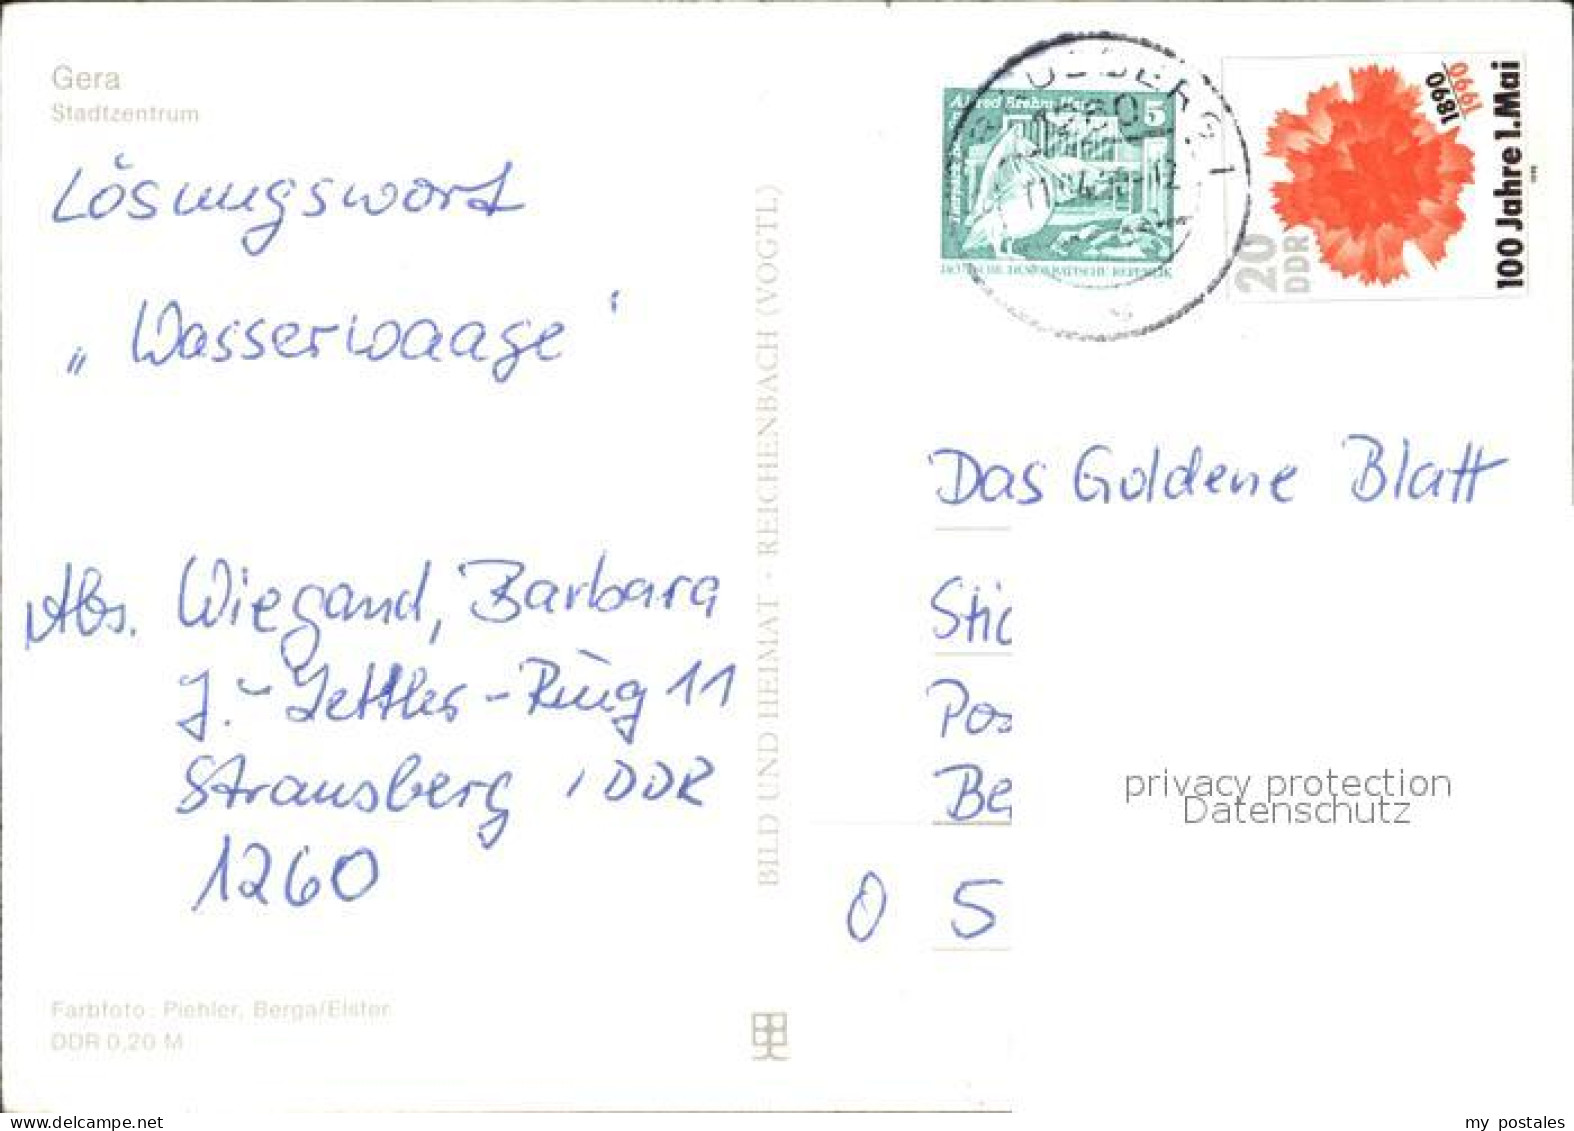 Gera
Stadtzentrum
Lösungswort
„Wasserwaage‘
Abs. Wiegand, Barbara
J.-Zettler-Ring 11
Strausberg, DDR
1260
Farbfoto: Piehler, Berga/Elster
DDR 0,20 M
BILD UND HEIMAT · REICHENBACH (VOGTL)
Alfred Brehm
5
DEUTSCHE DEMOKRATISCHE REPUBLIK
1260
1
20
DDR
1890
1990
100 Jahre 1.Mai
Das Goldene Blatt
Stic
Pos
Be
0 5
privacy protection
Datenschutz
delcampe.net
my postales